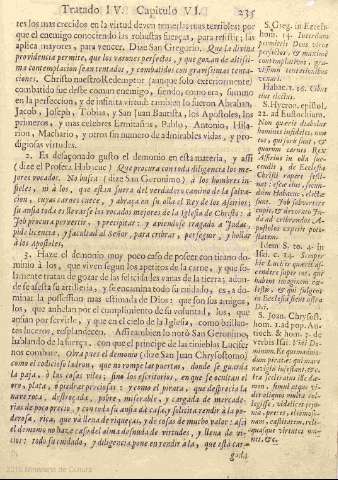 Tratado IV. Capitulo VI. 235
res los mas crecidos en la virtud deven temerlas mas terribles; por
que el enemigo conociendo las robustas fuerças, para resistir; las
aplica mayores, para vencer. Dize San Gregorio. Que la divina
providencia permite, que los varones perfectos, y que gozan de altissi-
ma contemplacion sean tentados, y combatidos con gravissimas tenta-
ciones. Christo nuestro Redemptor (aunque solo exteriormente)
combatido fue desse comun enemigo, siendo, como era, summo
en la perfeccion, y de infinita virtud: tambien lo fueron Abrahan,
Jacob, Joseph, Tobias, y San Juan Bautista, los Apostoles, los
primeros, y mas celebres Ermitaños, Pablo, Antonio, Hila-
rion, Machario, y otros sin numero de admirables vidas, y pro-
digiosas virtudes.
2. Es desaçonado gusto el demonio en esta materia, y assi
(dize el Profeta Habacuc) Que procura con toda diligencia los me-
jores vocados. No busca (dize San Geronimo) à los hombres in-
fieles, ni à los, que estàn fuera del verdadero camino de la salva-
cion, cuyas carnes cuece, y abrasa en su olla el Rey de los Asirios;
su ansia toda es llevarse los vocados mejores de la Iglesia de Christo: à
Job procura pervertir, y precipitar: y aviendose tragado à Judas,
pide licencia, y facultad al Señor, para cribar, perseguir, y hollar
à los Apostoles.
3. Haze el demonio muy poco caso de posseer con tirano do-
minio à los, que viven segun los apetitos de la carne, y que so-
lamente tratan de gozar de las felicidades vanas de la tierra; acuer-
da se asesta su artilleria, y se encamina todo su cuidado, es, à do-
minar la possession mas estimada de Dios: que son sus amigos,
los, que anhelan por el cumplimiento de su voluntad, los, que
ansian por servirle, y que en el cielo de la Iglesia, como brillan-
tes luceros, resplandecen. Assi tambien lo notò San Geronimo,
hablando de la fuerça, con que el principe de las tinieblas Lucifer
nos combate. Obra pues el demonio (dize San Juan Chrysostomo)
como el codicioso ladron, que no rompe las puertas, donde se guarda
la paja, à las casas viles; sino los escritorios, en que se ocultan el
oro, plata, ò piedras preciosas: y como el pirata, que desprecia la
nave rota, destroçada, pobre, miserable, y cargada de mercade-
rias de poco precio, y con toda su ansia dà casa, y solicita rendir à la po-
derosa, rica, que và llena de riqueças, y de cosas de mucho valor: assi
el demonio no haze caso del alma desnuda de virtudes, y llena de vi-
cios: todo su cuidado, y diligencia pone en rendir à la, que està car-
gada
S. Greg. in Ezech.
hom. 14. Interdum
permittit Deus viros
perfectos, & maxima
contemplationis, gra-
vissimis tentationibus
vexari.
Habacuc. 16. Cibus
eius electus.
S. Hyeron. epistol.
22. ad Eustochium.
Non quærit diabolus
homines infideles, non
eos, qui foris sunt, &
quorum carnes Rex
Assirius in olla suc-
cendit; de Ecclesia
Christi rapere festi-
nat: escæ eius, secun-
dum Habacuc, electæ
sunt. Job subvertere
cupit, & devorato Ju-
da ad cribrandos A-
postolos expetit pote-
statem.
Idem S. to. 4. in
Isai. c. 14. Semper
hic Lucifer quærit as-
cendere super eos, qui
habent imaginem cœ-
lestis, & qui fulgent
in Ecclesia sicut astra
Dei.
S. Joan. Chrysost.
hom. 1. ad pop. An-
tioch. & hom. 3. de
verbis Isai. Vidi Do-
minum.